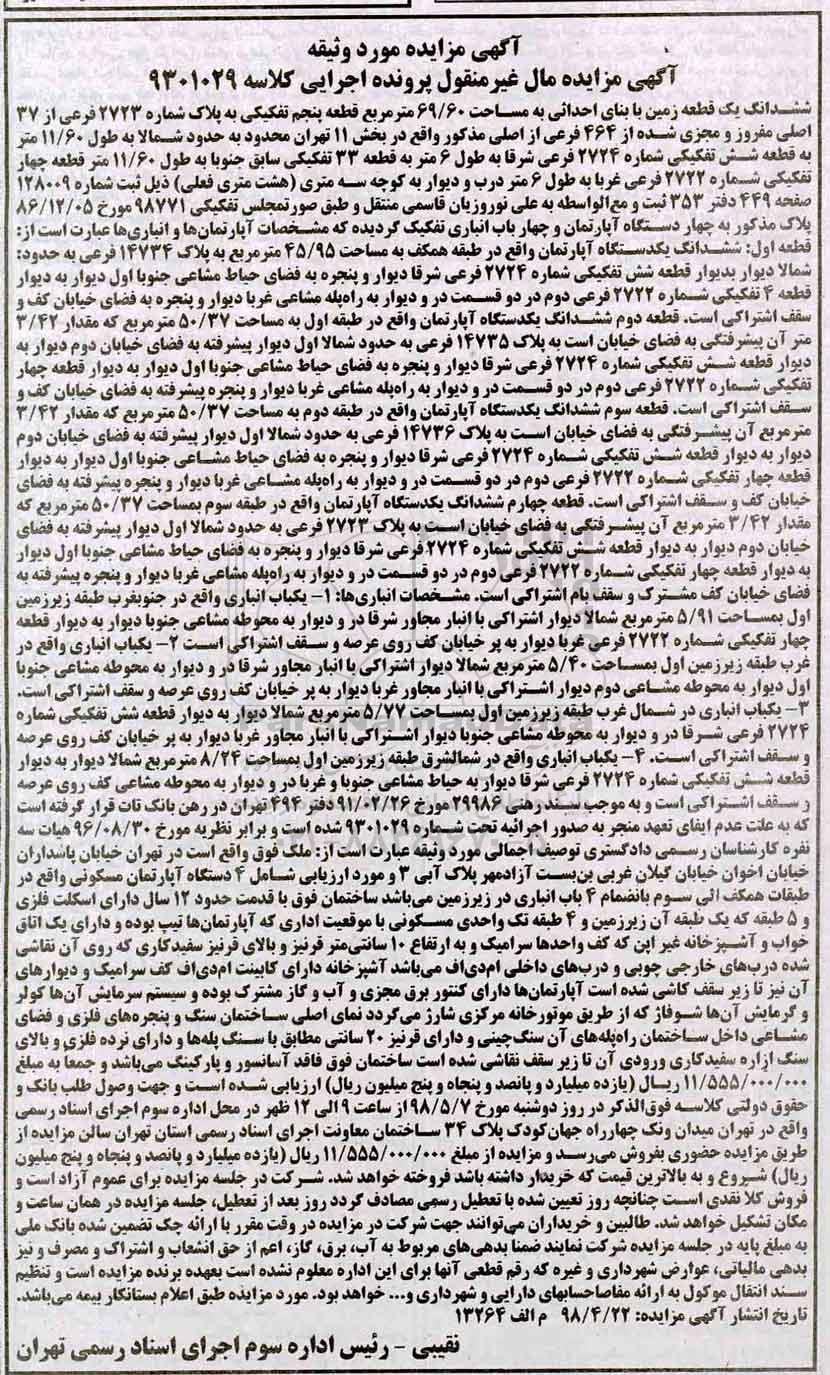 آگهی مزایده مورد وثیقه
آگهی مزایده مال غیرمنقول پرونده اجرایی کلاسه ۹۳۰۱۰۲۹
ششدانگ یک قطعه زمین با بنای احداثی به مساحت ۶۹/۶۰ مترمربع قطعه پنجم تفکیکی به پلاک شماره ۲۷۲۳ فرعی از ۳۷
اصلی مفروز و مجزی شده از ۴۶۴ فرعی از اصلی مذکور واقع در بخش ۱۱ تهران محدود به حدود شمالا به طول ۱۱/۶۰ متر
به قطعه شش تفکیکی شماره ۲۷۲۴ فرعی شرقا به طول ۶ متر به قطعه ۳۳ تفکیکی سابق جنوبا به طول ۱۱/۶۰ متر قطعه چهار
تفکیکی شماره ۲۷۲۲ فرعی غربا به طول ۶ متر درب و دیوار به کوچه سه متری (هشت متری فعلی) ذیل ثبت شماره ۱۲۸۰۰۹
صفحه ۴۴۹ دفتر ۳۵۳ ثبت و مع‌الواسطه به علی نوروزیان قاسمی منتقل و طبق صورتمجلس تفکیکی ۹۸۷۷۱ مورخ ۸۶/۱۲/۰۵
پلاک مذکور به چهار دستگاه آپارتمان و چهار باب انباری تفکیک گردیده که مشخصات آپارتمان‌ها و انباری‌ها عبارت است از:
قطعه اول: ششدانگ یکدستگاه آپارتمان واقع در طبقه همکف به مساحت ۴۵/۹۵ مترمربع به پلاک ۱۴۷۳۴ فرعی به حدود:
شمالا دیوار بدیوار قطعه شش تفکیکی شماره ۲۷۲۴ فرعی شرقا دیوار و پنجره به فضای حیاط مشاعی جنوبا اول دیوار به دیوار
قطعه ۴ تفکیکی شماره ۲۷۲۲ فرعی دوم در دو قسمت در و دیوار به راه‌پله مشاعی غربا دیوار و پنجره به فضای خیابان کف و
سقف اشتراکی است. قطعه دوم ششدانگ یکدستگاه آپارتمان واقع در طبقه اول به مساحت ۵۰/۳۷ مترمربع که مقدار ۳/۴۲
متر آن پیشرفتگی به فضای خیابان است به پلاک ۱۴۷۳۵ فرعی به حدود شمالا اول دیوار پیشرفته به فضای خیابان دوم دیوار به
دیوار قطعه شش تفکیکی شماره ۲۷۲۴ فرعی شرقا دیوار و پنجره به فضای حیاط مشاعی جنوبا اول دیوار به دیوار قطعه چهار
تفکیکی شماره ۲۷۲۲ فرعی دوم در دو قسمت در و دیوار به راه‌پله مشاعی غربا دیوار و پنجره پیشرفته به فضای خیابان کف و
سقف اشتراکی است. قطعه سوم ششدانگ یکدستگاه آپارتمان واقع در طبقه دوم به مساحت ۵۰/۳۷ مترمربع که مقدار ۳/۴۲
مترمربع آن پیشرفتگی به فضای خیابان است به پلاک ۱۴۷۳۶ فرعی به حدود شمالا اول دیوار پیشرفته به فضای خیابان دوم
دیوار به دیوار قطعه شش تفکیکی شماره ۲۷۲۴ فرعی شرقا دیوار و پنجره به فضای حیاط مشاعی جنوبا اول دیوار به دیوار
قطعه چهار تفکیکی شماره ۲۷۲۲ فرعی دوم در دو قسمت در و دیوار به راه‌پله مشاعی غربا دیوار و پنجره پیشرفته به فضای
خیابان کف و سقف اشتراکی است. قطعه چهارم ششدانگ یکدستگاه آپارتمان واقع در طبقه سوم بمساحت ۵۰/۳۷ مترمربع که
مقدار ۳/۴۲ مترمربع آن پیشرفتگی به فضای خیابان است به پلاک ۲۷۲۳ فرعی به حدود شمالا اول دیوار پیشرفته به فضای
خیابان دوم دیوار به دیوار قطعه شش تفکیکی شماره ۲۷۲۴ فرعی شرقا دیوار و پنجره به فضای حیاط مشاعی جنوبا اول دیوار
به دیوار قطعه چهار تفکیکی شماره ۲۷۲۲ فرعی دوم در دو قسمت در و دیوار به راه‌پله مشاعی غربا دیوار و پنجره پیشرفته به
فضای خیابان کف مشترک و سقف بام اشتراکی است. مشخصات انباری‌ها: ۱- یکباب انباری واقع در جنوبغرب طبقه زیرزمین
اول بمساحت ۵/۹۱ مترمربع شمالا دیوار اشتراکی با انبار مجاور شرقا در و دیوار به محوطه مشاعی جنوبا دیوار به دیوار قطعه
چهار تفکیکی شماره ۲۷۲۲ فرعی غربا دیوار به پر خیابان کف روی عرصه و سقف اشتراکی است ۲- یکباب انباری واقع در
غرب طبقه زیرزمین اول بمساحت ۵/۴۰ مترمربع شمالا دیوار اشتراکی با انبار مجاور شرقا در و دیوار به محوطه مشاعی جنوبا
اول دیوار به محوطه مشاعی دوم دیوار اشتراکی با انبار مجاور غربا دیوار به پر خیابان کف روی عرصه و سقف اشتراکی است.
۳- یکباب انباری در شمال غرب طبقه زیرزمین اول بمساحت ۵/۷۷ مترمربع شمالا دیوار به دیوار قطعه شش تفکیکی شماره
۲۷۲۴ فرعی شرقا در و دیوار به محوطه مشاعی جنوبا دیوار اشتراکی با انبار مجاور غربا دیوار به پر خیابان کف روی عرصه
و سقف اشتراکی است. ۴- یکباب انباری واقع در شمالشرق طبقه زیرزمین اول بمساحت ۸/۲۴ مترمربع شمالا دیوار به دیوار
قطعه شش تفکیکی شماره ۲۷۲۴ فرعی شرقا دیوار به حیاط مشاعی جنوبا و غربا در و دیوار به محوطه مشاعی کف روی عرصه
و سقف اشتراکی است و به موجب سند رهنی ۲۹۹۸۶ مورخ ۹۱/۰۲/۲۶ دفتر ۴۹۴ تهران در رهن بانک تات قرار گرفته است
که به علت عدم ایفای تعهد منجر به صدور اجرائیه تحت شماره ۹۳۰۱۰۲۹ شده است و برابر نظریه مورخ ۹۶/۰۸/۳۰ هیات سه
نفره کارشناسان رسمی دادگستری توصیف اجمالی مورد وثیقه عبارت است از: ملک فوق واقع است در تهران خیابان پاسداران
خیابان اخوان خیابان گیلان غربی بن‌بست آزادمهر پلاک آبی ۳ و مورد ارزیابی شامل ۴ دستگاه آپارتمان مسکونی واقع در
طبقات همکف الی سوم بانضمام ۴ باب انباری در زیرزمین می‌باشد ساختمان فوق با قدمت حدود ۱۲ سال دارای اسکلت فلزی
و ۵ طبقه که یک طبقه آن زیرزمین و ۴ طبقه تک واحدی مسکونی با موقعیت اداری که آپارتمان‌ها تیپ بوده و دارای یک اتاق
خواب و آشپزخانه غیر اپن که کف واحدها سرامیک و به ارتفاع ۱۰ سانتی‌متر قرنیز و بالای قرنیز سفیدکاری که روی آن نقاشی
شده درب‌های خارجی چوبی و درب‌های داخلی ام‌دی‌اف می‌باشد آشپزخانه دارای کابینت ام‌دی‌اف کف سرامیک و دیوارهای
آن نیز تا زیر سقف کاشی شده است آپارتمان‌ها دارای کنتور برق مجزی و آب و گاز مشترک بوده و سیستم سرمایش آن‌ها کولر
و گرمایش آن‌ها شوفاژ که از طریق موتورخانه مرکزی شارژ می‌گردد نمای اصلی ساختمان سنگ و پنجره‌های فلزی و فضای
مشاعی داخل ساختمان راه‌پله‌های آن سنگ‌چینی و دارای قرنیز ۲۰ سانتی مطابق با سنگ پله‌ها و دارای نرده فلزی و بالای
سنگ ازاره سفیدکاری ورودی آن تا زیر سقف نقاشی شده است ساختمان فوق فاقد آسانسور و پارکینگ می‌باشد و جمعا به مبلغ
۱۱/۵۵۵/۰۰۰/۰۰۰ ریال (یازده میلیارد و پانصد و پنجاه و پنج میلیون ریال) ارزیابی شده است و جهت وصول طلب بانک و
حقوق دولتی کلاسه فوق‌الذکر در روز دوشنبه مورخ ۹۸/۵/۷ از ساعت ۹ الی ۱۲ ظهر در محل اداره سوم اجرای اسناد رسمی
واقع در تهران میدان ونک چهارراه جهان‌کودک پلاک ۳۴ ساختمان معاونت اجرای اسناد رسمی استان تهران سالن مزایده از
طریق مزایده حضوری بفروش می‌رسد و مزایده از مبلغ ۱۱/۵۵۵/۰۰۰/۰۰۰ ریال (یازده میلیارد و پانصد و پنجاه و پنج میلیون
ریال) شروع و به بالاترین قیمت که خریدار داشته باشد فروخته خواهد شد. شرکت در جلسه مزایده برای عموم آزاد است و
فروش کلا نقدی است چنانچه روز تعیین شده با تعطیل رسمی مصادف گردد روز بعد از تعطیل، جلسه مزایده در همان ساعت و
مکان تشکیل خواهد شد. طالبین و خریداران می‌توانند جهت شرکت در مزایده در وقت مقرر با ارائه چک تضمین شده بانک ملی
به مبلغ پایه در جلسه مزایده شرکت نمایند ضمنا بدهی‌های مربوط به آب، برق، گاز، اعم از حق انشعاب و اشتراک و مصرف و نیز
بدهی مالیاتی، عوارض شهرداری و غیره که رقم قطعی آنها برای این اداره معلوم نشده است بعهده برنده مزایده است و تنظیم
سند انتقال موکول به ارائه مفاصاحسابهای دارایی و شهرداری و... خواهد بود. مورد مزایده طبق اعلام بستانکار بیمه می‌باشد.
تاریخ انتشار آگهی مزایده: ۹۸/۴/۲۲ م الف ۱۳۲۶۴
نقیبی - رئیس اداره سوم اجرای اسناد رسمی تهران